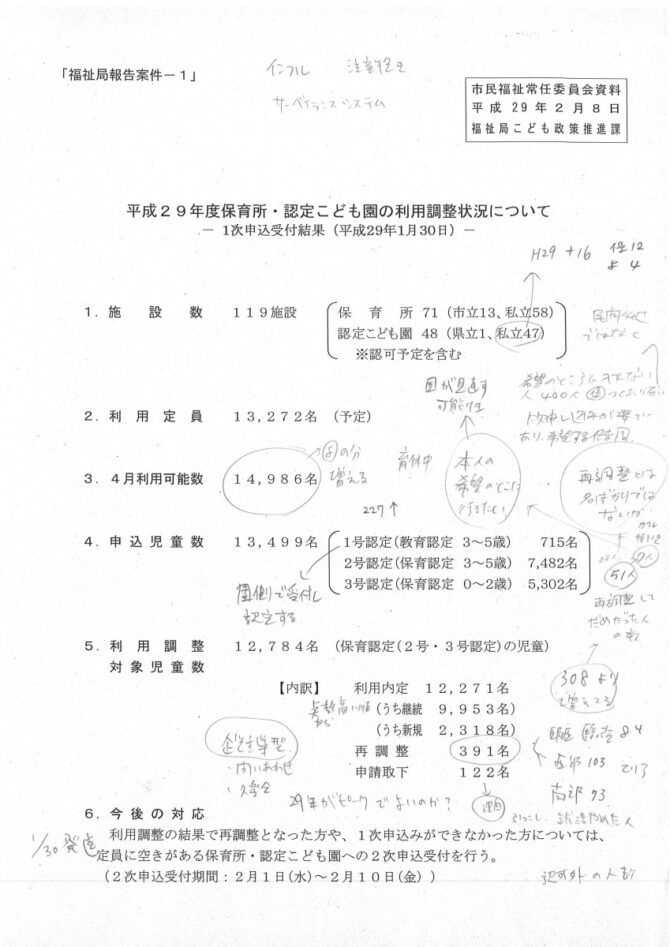 「福祉局報告案件－１」
インフル
サーベイランスシステム
市民福祉常任委員会資料
平成２９年２月８日
福祉局こども政策推進課
平成２９年度保育所・認定こども園の利用調整状況について
－ 1次申込受付結果（平成29年1月30日）－
H29 +16
１．施設数　１１９施設
保育所 71（市立13、私立58）
認定こども園 48（県立1、私立47）
※認可予定を含む
国が見直す
可能性
２．利用定員　１３,２７２名（予定）
３．４月利用可能数　１４,９８６名
の分
増える
育休中
本人の
希望のとこに
行きたい
再調整とは
名ばかりでは
ないか
227↑
４．申込児童数　１３,４９９名
1号認定（教育認定 3～5歳）　715名
2号認定（保育認定 3～5歳）　7,482名
3号認定（保育認定 0～2歳）　5,302名
51人
園側で受付し
認定する
再調整して
だめだった人
の数
５．利用調整　１２,７８４名（保育認定（２号・３号認定）の児童）
対象児童数
【内訳】　利用内定　１２,２７１名
（うち継続　９,９５３名）
（うち新規　２,３１８名）
再調整　３９１名
申請取下　１２２名
点数高い順
から
308より
増えてる
84
西部 103
南部 93
問いあわせ
29年がピークでよいのか？
理由
６．今後の対応
1/30 発送
利用調整の結果で再調整となった方や、１次申込みができなかった方については、
定員に空きがある保育所・認定こども園への２次申込受付を行う。
（２次申込受付期間：２月１日(水)～２月１０日(金)）
認可外の人数